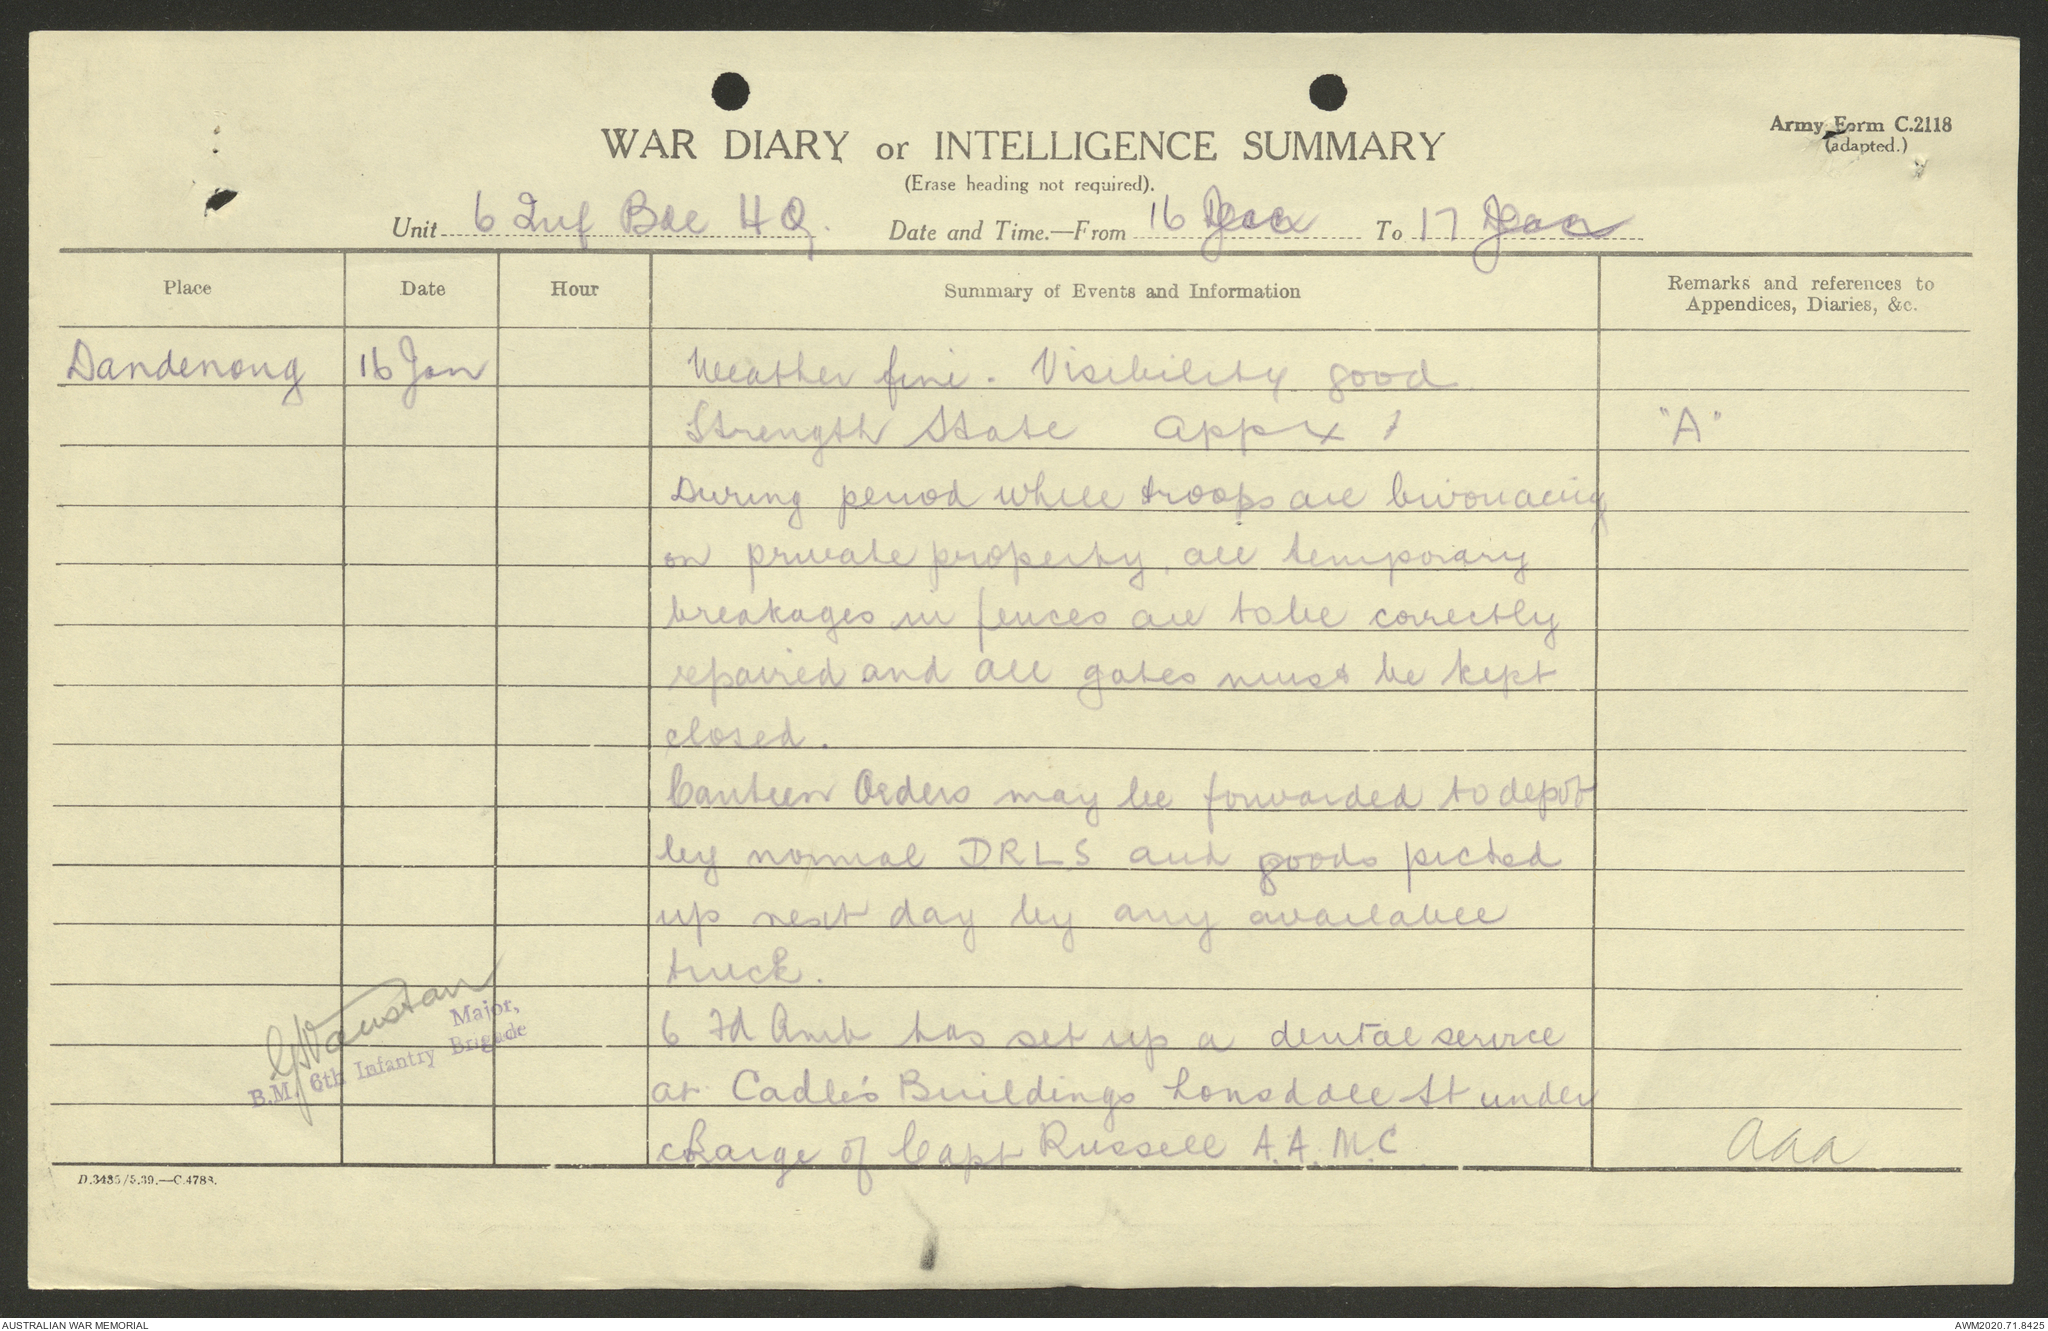 Army Form C.2118
(adapted.)
WAR DIARY or INTELLIGENCE SUMMARY
(Erase heading not required).
Unit 6 Inf Bde HQ. Date and Time.—From 16 Jan To 17 Jan
Place Date Hour Summary of Events and Information Remarks and references to Appendices, Diaries, &c.
Dandenong 16 Jan Weather fine. Visibility good
Strength State appx 1 "A"
During period while troops are bivouacing
on private property, all temporary
breakages in fences are to be correctly
repaired and all gates must be kept
closed.
Canteen Orders may be forwarded to depot
by normal DRLS and goods picked
up next day by any available
truck.
6 Fd Amb has set up a dental service
at Cadle's Buildings Lonsdale St under
charge of Capt Russell A.A.M.C
Major,
B.M. 6th Infantry Brigade
aaa
D.3485/5.39.—C.4788.
AUSTRALIAN WAR MEMORIAL
AWM2020.71.8425